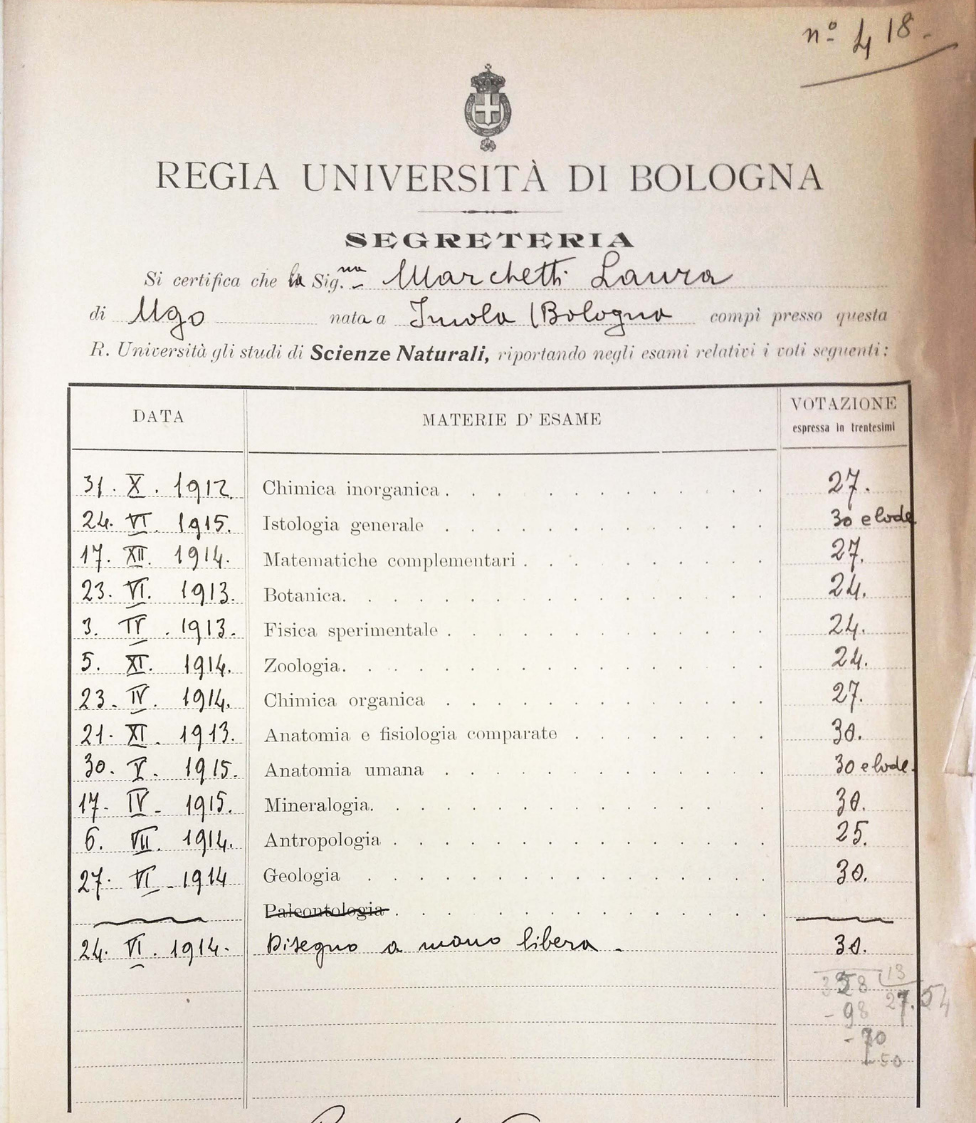 nº 418.
REGIA UNIVERSITÀ DI BOLOGNA
SEGRETERIA
Si certifica che la Sig.na Marchetti Laura
di Ugo nata a Imola (Bologna compì presso questa
R. Università gli studi di Scienze Naturali, riportando negli esami relativi i voti seguenti:
DATA MATERIE D' ESAME VOTAZIONE
espressa in trentesimi
31. X. 1912 Chimica inorganica 27.
24. VI 1915. Istologia generale 30 e lode
17. XII. 1914. Matematiche complementari 27.
23. VI. 1913. Botanica. 24.
3. IV. 1913. Fisica sperimentale 24.
5. XI. 1914. Zoologia. 24.
23. IV. 1914. Chimica organica 27.
21. XI. 1913. Anatomia e fisiologia comparate 30.
30. V. 1915. Anatomia umana 30 e lode.
17. IV. 1915. Mineralogia. 30.
6. VII. 1914. Antropologia 25.
27. VI. 1914 Geologia 30.
Paleontologia
24. VI. 1914. Disegno a mano libera. 30.
358 13
- 98 27.54
- 70
- 50